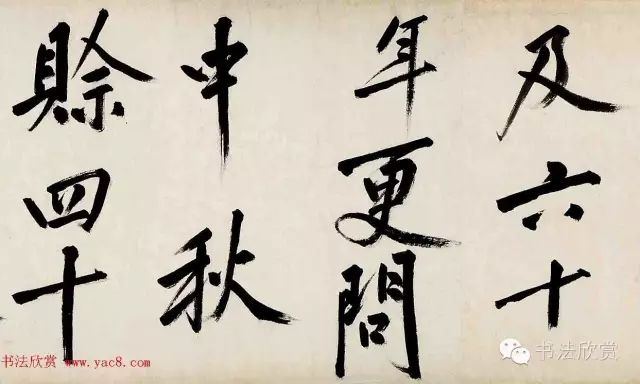 及六十
年更問
中秋
賖四十
书法欣赏 www.yac8.com
书法欣赏